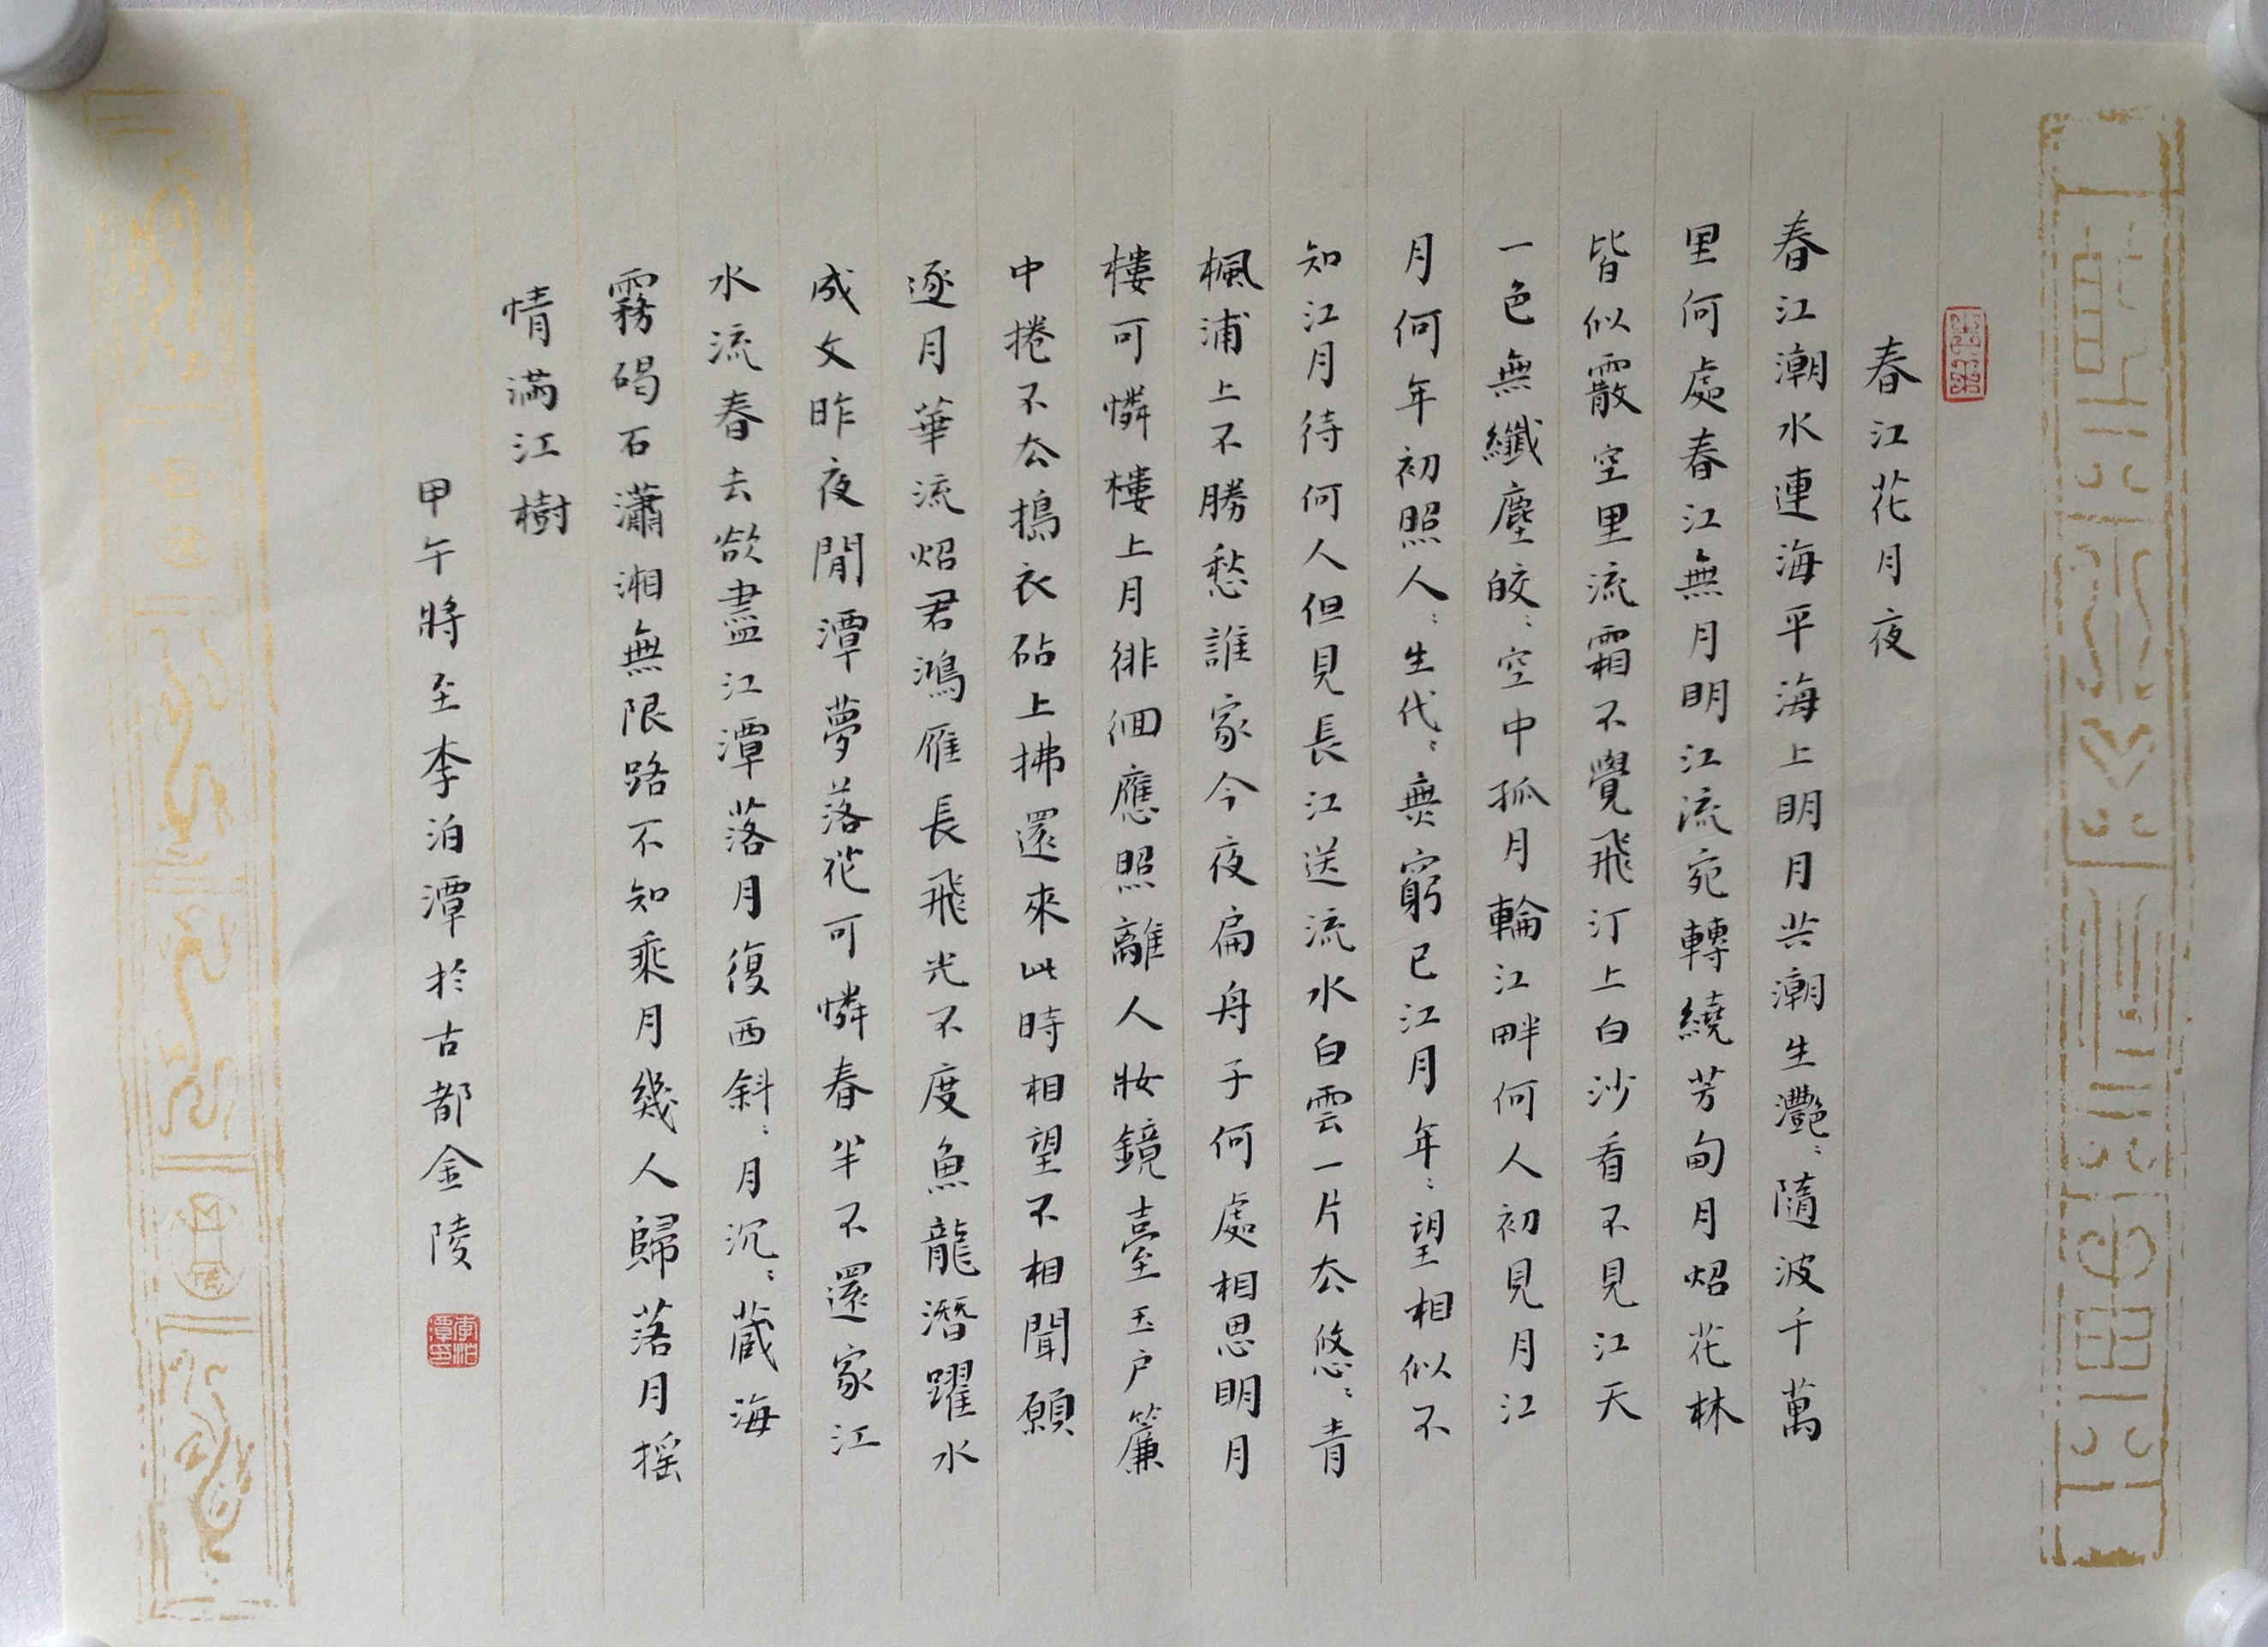 春江花月夜
春江潮水連海平海上明月共潮生灩〻隨波千萬
里何處春江無月明江流宛轉繞芳甸月炤花林
皆似霰空里流霜不覺飛汀上白沙看不見江天
一色無纖塵皎〻空中孤月輪江畔何人初見月江
月何年初照人〻生代〻無窮已江月年〻望相似不
知江月待何人但見長江送流水白雲一片厺悠〻青
楓浦上不勝愁誰家今夜扁舟子何處相思明月
樓可憐樓上月徘徊應照離人妝鏡臺玉户簾
中捲不厺搗衣砧上拂還來此時相望不相聞願
逐月華流炤君鴻雁長飛光不度魚龍潛躍水
成文昨夜閒潭夢落花可憐春半不還家江
水流春去欲盡江潭落月復西斜〻月沉〻蔵海
霧碣石瀟湘無限路不知乘月幾人歸落月摇
情滿江樹
甲午將至李泊潭於古都金陵
李泊潭印